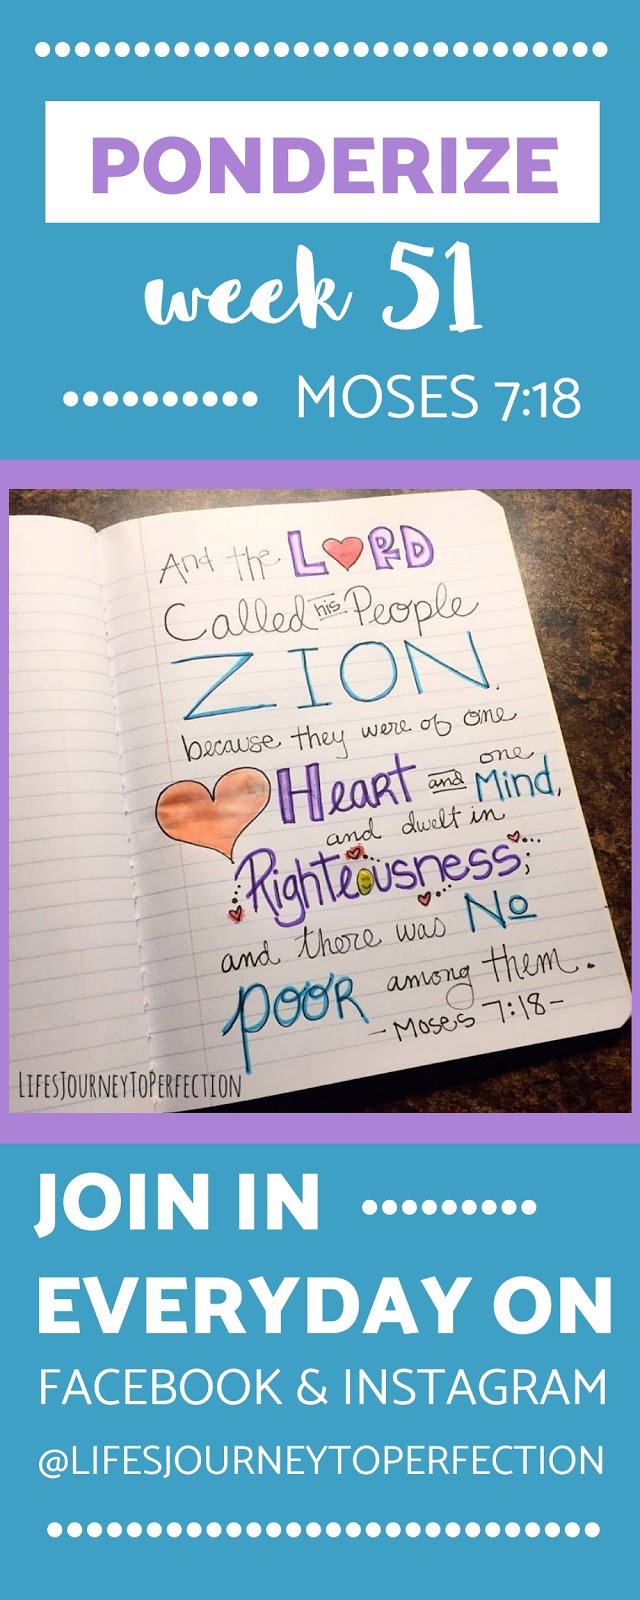 PONDERIZE
week 51
MOSES 7:18
And the LORD
Called his People
ZION,
because they were of one
Heart and one
Mind,
and dwelt in
Righteousness;
and there was No
poor among them.
- Moses 7:18 -
LIFESJOURNEYTOPERFECTION
JOIN IN
EVERYDAY ON
FACEBOOK & INSTAGRAM
@LIFESJOURNEYTOPERFECTION